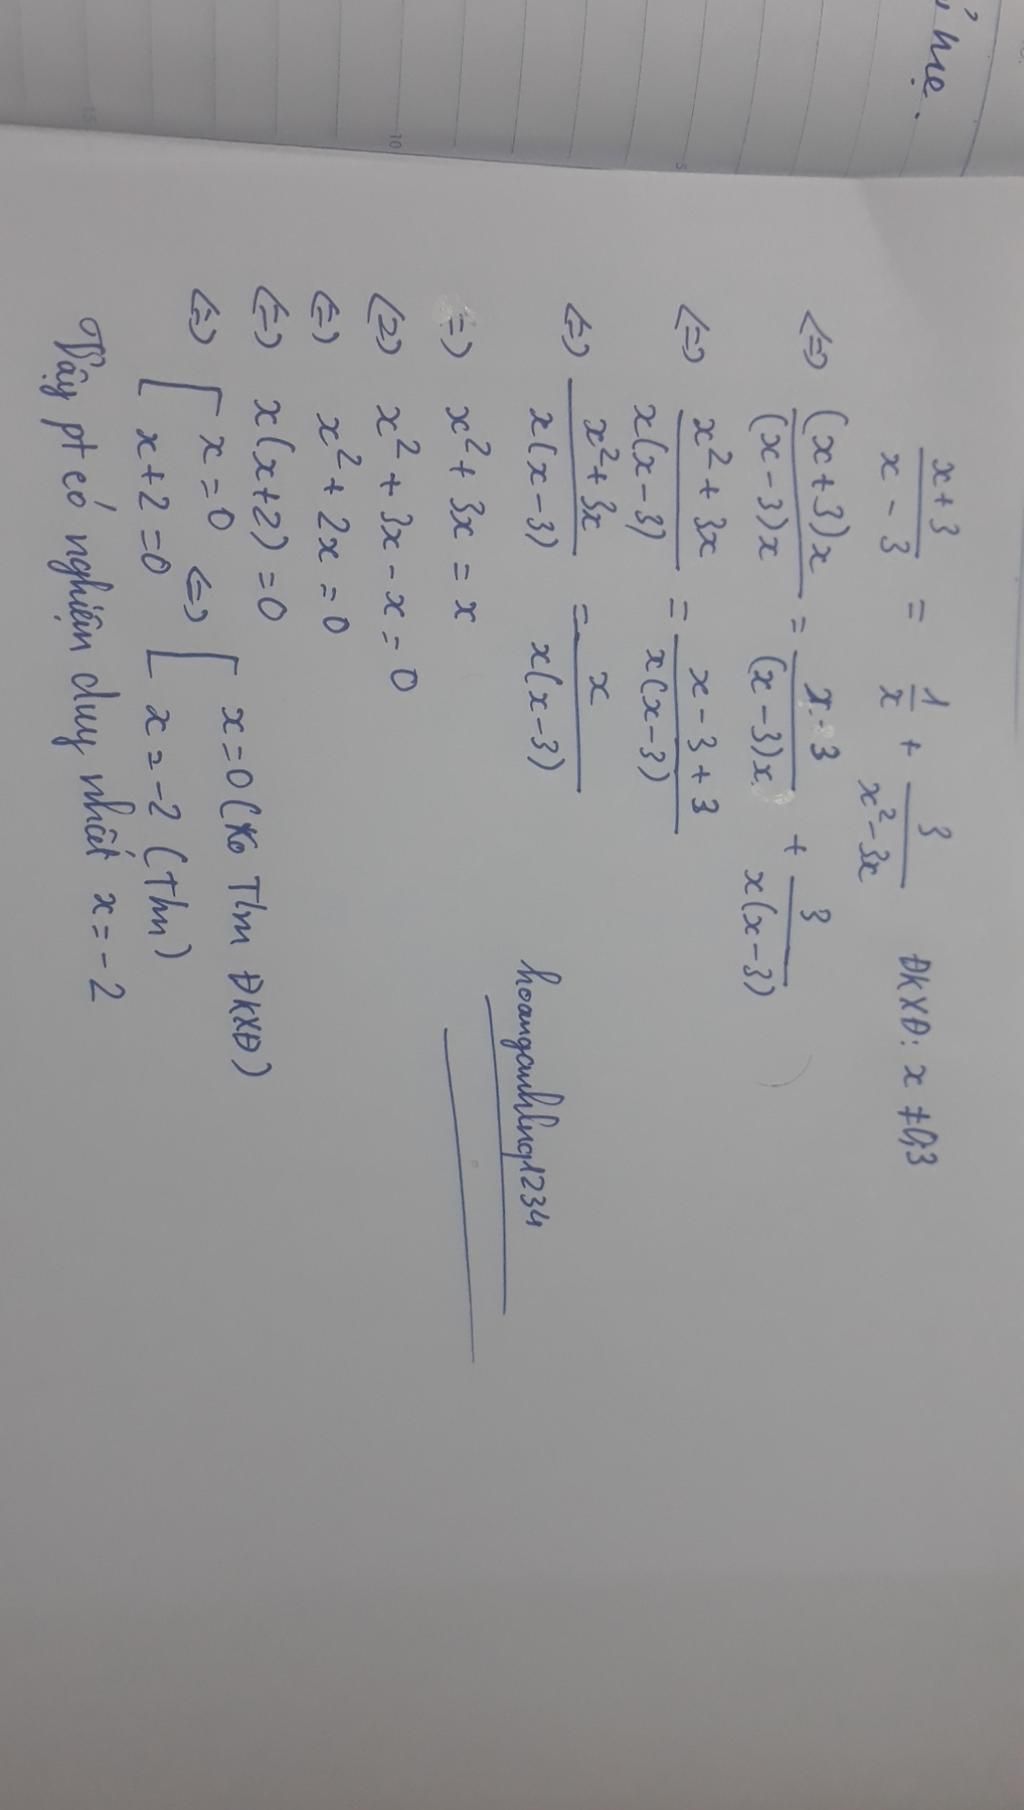 mẹ.
5
10
15
x+3/x-3 = 1/x + 3/x²-3x ĐKXĐ: x ≠ 0;3
<=> (x+3)x/(x-3)x = x-3/(x-3)x + 3/x(x-3)
<=> x²+3x/x(x-3) = x-3+3/x(x-3)
<=> x²+3x/x(x-3) = x/x(x-3)
=> x²+3x = x
<=> x²+3x-x=0
<=> x²+2x=0
<=> x(x+2)=0
<=> [ x=0 <=> [ x=0 (Ko Tlm ĐKXĐ)
x+2=0 x=-2 (thm)
Vậy pt có nghiệm duy nhất x=-2
hoanganhlng1234